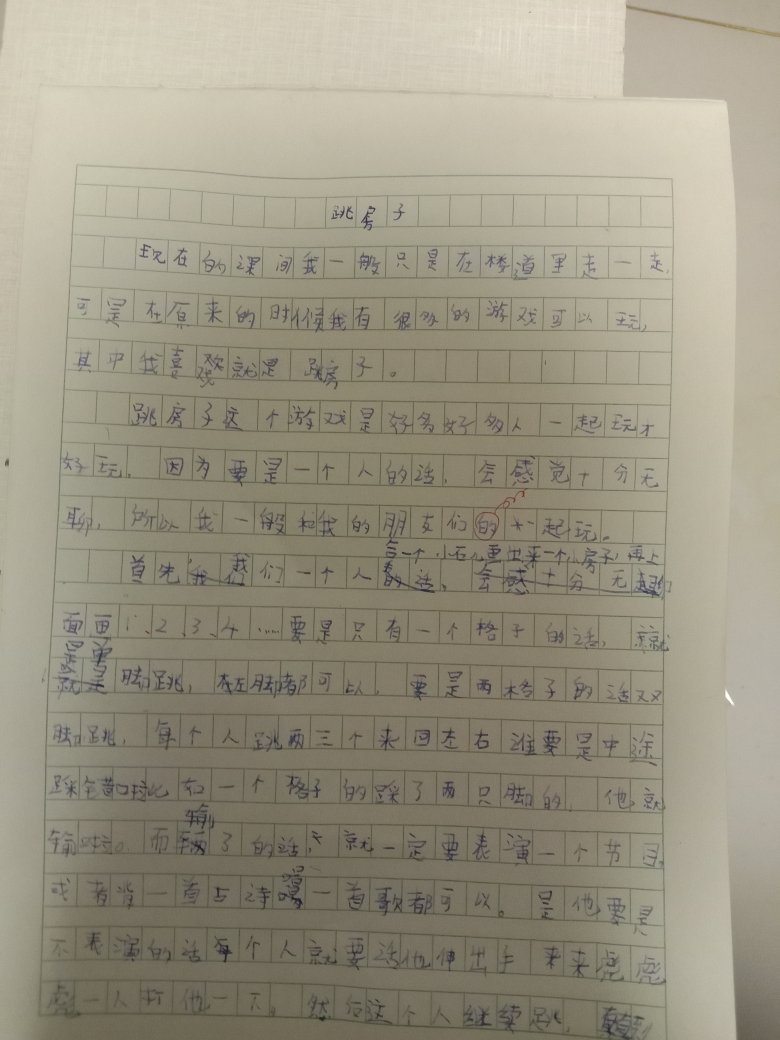 跳房子
现在的课间我一般只是在楼道里走一走,
可是在原来的时候我有很多的游戏可以玩,
其中我喜欢就是跳房子。
跳房子这个游戏是好多好多人一起玩才
好玩。因为要是一个人的话,会感觉十分无
聊,所以我一般和我的朋友们的一起玩。
一个小石儿画出来一个小房子,再上
首先我们一个人的话,会感十分无
面画1、2、3、4……要是只有一个格子的话,就
是单脚跳,左脚都可以,要是两格子的话双
脚跳,每个人跳两三个来回左右谁要是中途
踩错如一个格子的踩了两只脚的,他就
输。而输了的话,就一定要表演一个节目,
或者背一首古诗唱一首歌都可以。是他要是
不表演的话每个人就要话他伸出手来来
一人打他一下。然后这个人继续跳,